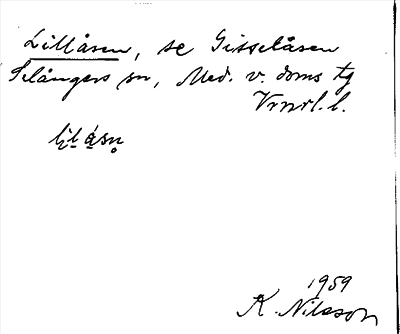 Lillåsen, se Gisselåsen
Selångers sn, Med. v. doms tg
Vrnrl. l.
1959
K. Nilsson